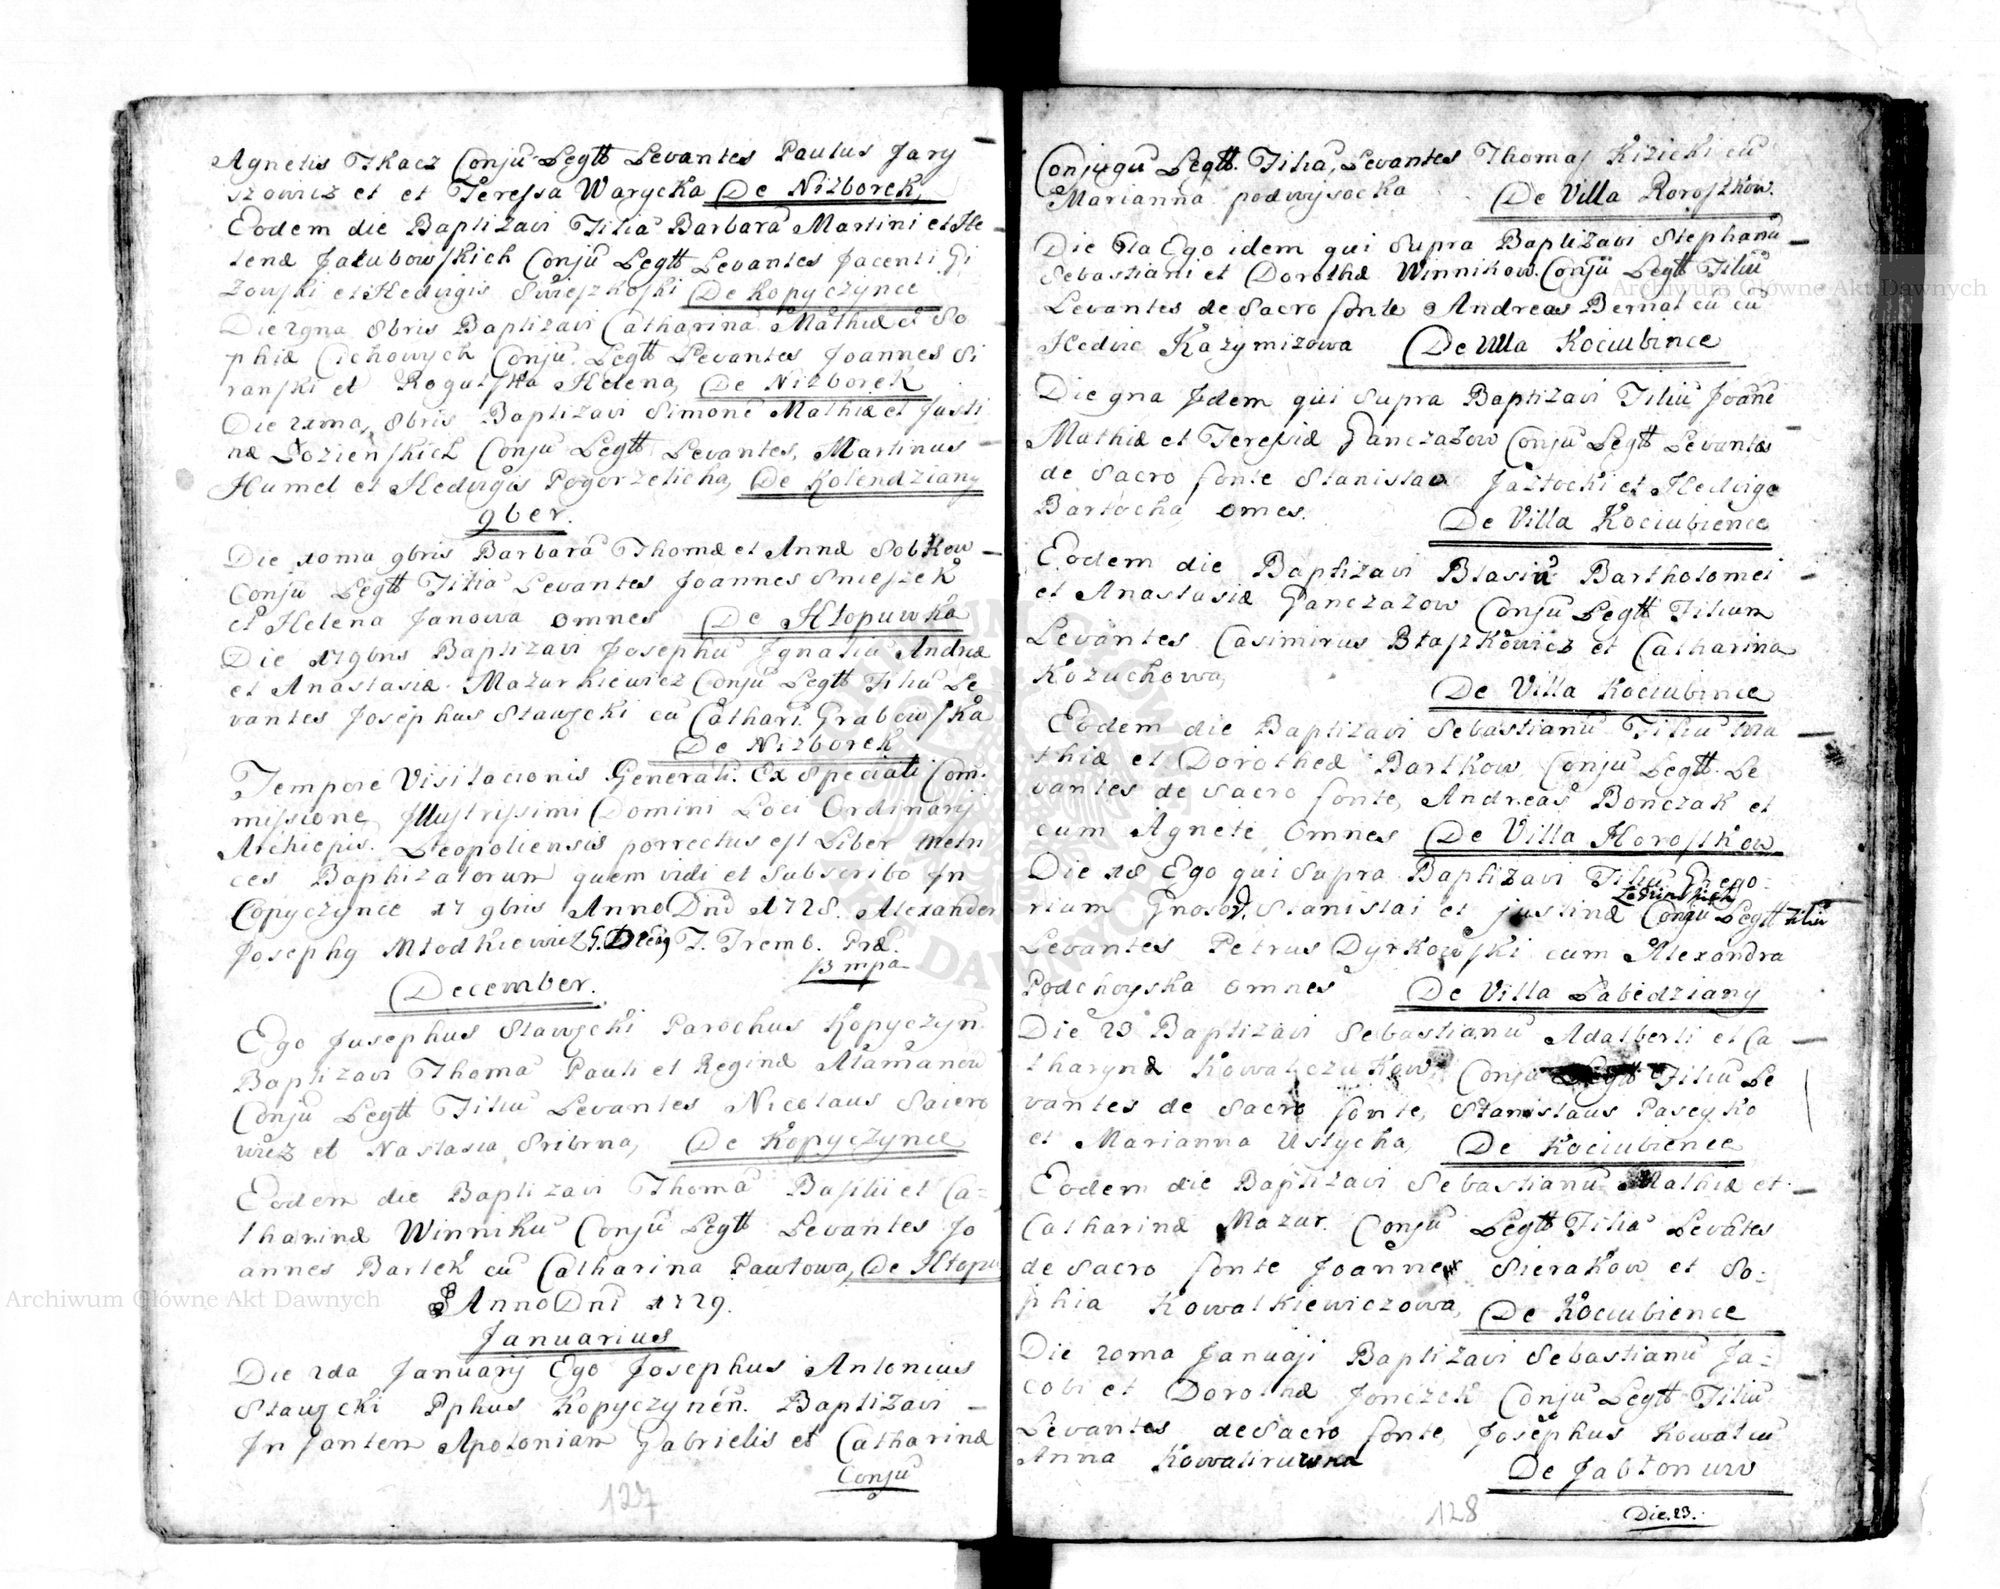 Agnetis Tkacz Conju Legtt Levantes Paulus Jary
szowicz et et Teressa Warycka De Nizborek
Eodem die Baptizavi Filiā Barbarā Martini et He
lenæ Jakubowskich Conjū Legtt Levantes Jacenti Gi
zowski et Hedvigis Swieszkoski De Kopyczynce
Die 29na 8bris Baptizavi Catharinā Mathiæ et So
phiæ Cichowych Conjū Legtt Levantes Joannes Si
ranski et Rogulska Helena, De Nizborek
Die 31ma, 8bris Baptizavi Simonē Mathiæ et Justi
næ Łozienskich Conjū Legtt Levantes, Martinus
Humel et Hedvigis Pogorzelicha, De Kolendziany
9ber.
Die 10ma 9bris Barbarā Thomæ et Annæ Sobkow
Conjū Legtt Filiā Levantes Joannes Snieszek
et Helena Janowa omnes De Hlopuwka
Die 17 9bris Baptizavi Josephū Ignatiū Andreæ
et Anastasiæ Mazurkiewicz Conjū Legtt Filiū Le
vantes Josephus Stawscki cū Cathari. Grabowska
De Nizborek
Tempore Visitacionis Generali. Ex Speciali Com.
missione Illustrissimi Domini Loci Ordinarij
Archiepis. Leopoliensis porrectus est Liber Metri
ces Baptizatorum quem vidi et Subscribo In
Copyczynce 17 9bris Anno Dni 1728. Alexander
Josephy Młodkiewicz T. Tremb. Præ.
mpa
December.
Ego Josephus Stawscki Parochus Kopyczyn.
Baptizavi Thomā Pauli et Reginæ Atamanow
Conjū Legtt Filiū Levantes Nicolaus Sawro
wicz et Nastasia Sribrna, De Kopyczynce
Eodem die Baptizavi Thomā Basilii et Ca-
tharinæ Winniku Conjū Legtt Levantes Jo
annes Bartek cū Catharina Pawłowa, De Hlopu
Anno Dni 1729.
Januarius
Die 2da Januarij Ego Josephus Antonius
Stawscki Pphus Kopyczynēn. Baptizavi
Infantem Apoloniam Gabrielis et Catharinæ
Conjū
127
Conjugū Legtt. Filiā, Levantes Thomas Kizicki cū
Marianna podwysocka De Villa Roroszkow.
Die 6ta Ego idem qui Supra Baptizavi Stephanū
Sebastiani et Dorothæ Winnikow. Conjū Legtt Filiū
Levantes de Sacro fonte Andreas Bernat cū cū
Hedvic Kazymizowa De Villa Kociubince
Die 9na Idem qui Supra Baptizavi Filiū Joañē
Mathiæ et Teressiæ Ganczazow Conjū Legtt Levantes
de Sacro fonte Stanislao Jaztocki et Hedvige
Bartocha omes. De Villa Kociubience
Eodem die Baptizavi Blasiū Bartholomei
et Anastasiæ Ganczazow Conjū Legtt Filium
Levantes Casimirus Błaszkowicz et Catharina
Kozuchowa, De Villa Kociubince
Eodem die Baptizavi Sebastianū Filiū Ma
thiæ et Dorotheæ Bartkow, Conjū Legtt. Le
vantes de Sacro fonte, Andreas Bonczak et
cum Agnete Omnes De Villa Horostkow
Die 18 Ego qui Supra Baptizavi Filiū Grego-
rium Gnosd. Stanislai et justinæ Conjū Legtt Filiū
Levantes Petrus Dyrkowski cum Alexandra
Podchoyska omnes De Villa Łabedziany
Die 23 Baptizavi Sebastianū Adalberti et Ca
tharynæ Kowalczukow Conjū Legtt Filiū Le
vantes de Sacro fonte, Stanislaus Paseyko
et Marianna Ustycha, De Kociubience
Eodem die Baptizavi Sebastianū Mathiæ et
Catharinæ Mazur. Conjū Legtt Filiā Levātes
de Sacro fonte Joannes Sierakow et So-
phia Kowalkiewiczowa, De Kociubience
Die 20ma Januaji Baptizavi Sebastianū Ja-
cobi et Dorothæ Jonczek Conjū Legtt Filiū
Levantes de Sacro fonte, Josephus Kowal cū
Anna Kowalirowna
De Jabłonuw
Die. 23.
128
Archiwum Główne Akt Dawnych
Archiwum Główne Akt Dawnych